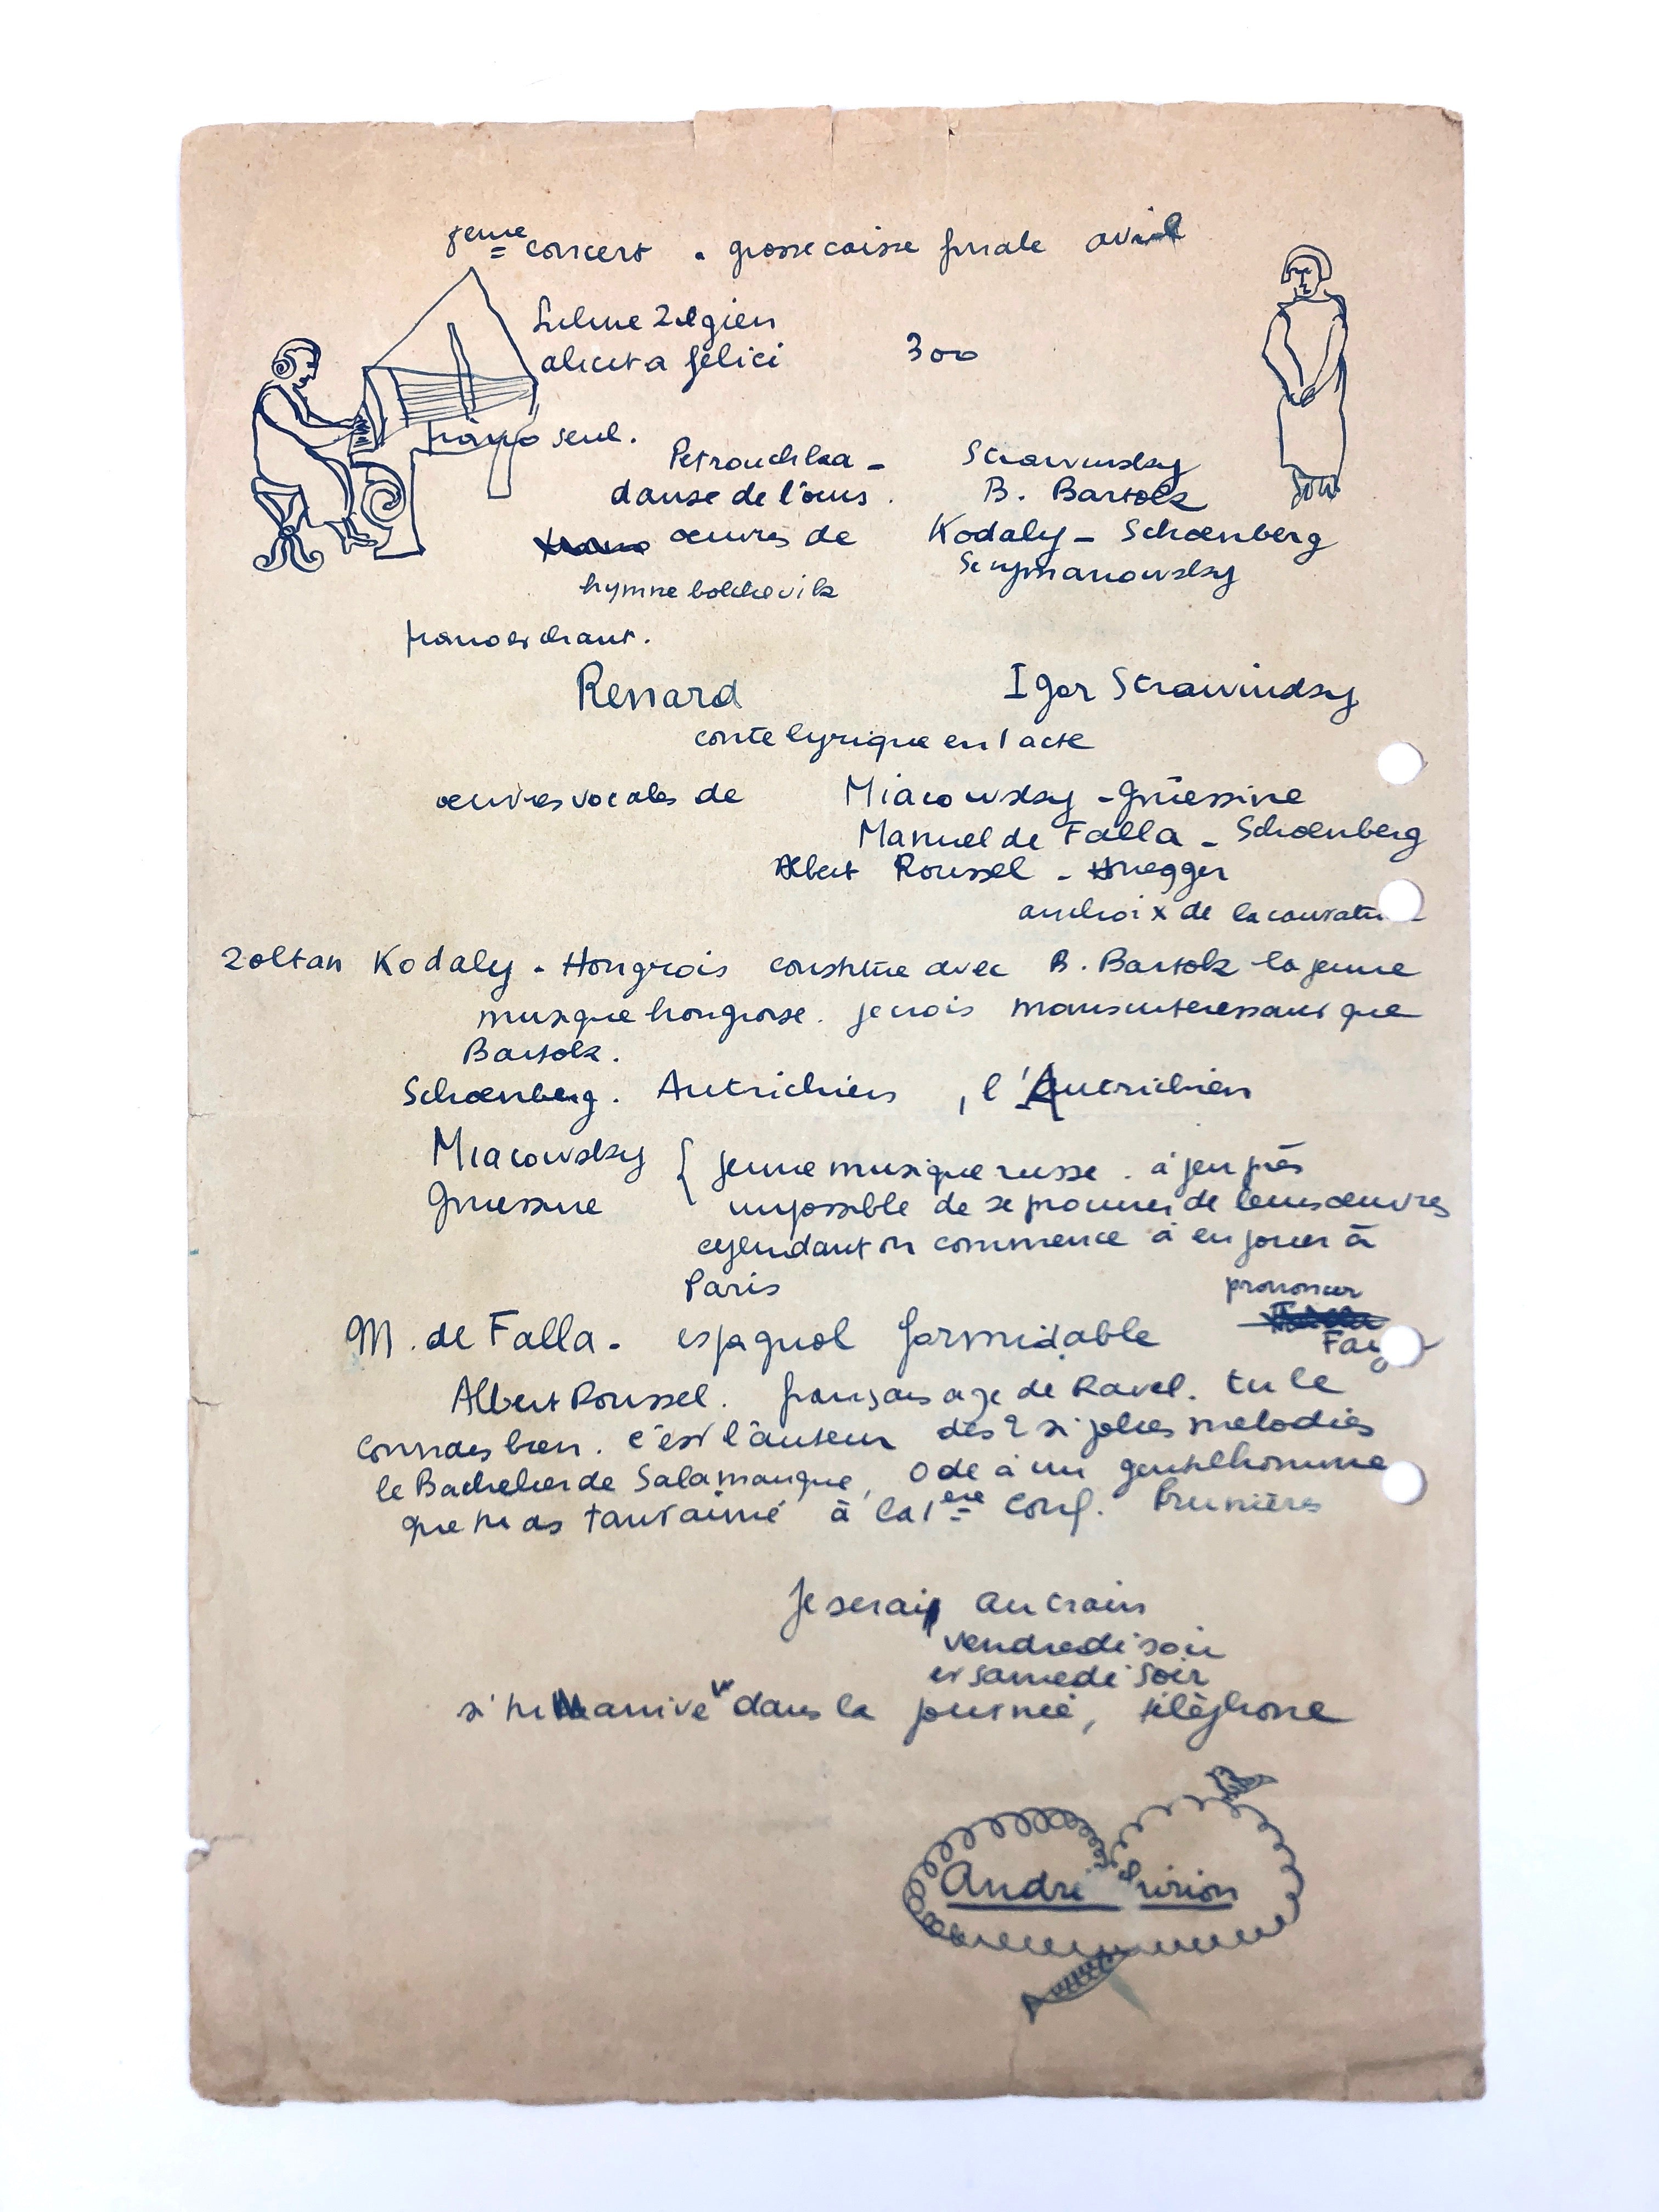 8eme concert . grosse caisse finale avril
Zelgien
alicita felici 300
piano seul.
Petrouchka - Strawinsky
danse de l'ours . B. Bartok
oeuvres de Kodaly - Schoenberg
Scymanowsky
hymne bolchevik
piano et chant.
Renard Igor Strawinsky
conte lyrique en 1 acte
oeuvres vocales de Miacowsky - Gniessine
Manuel de Falla - Schoenberg
Albert Roussel - Honegger
au choix de la
Zoltan Kodaly - Hongrois constitue avec B. Bartok la jeune
musique hongroise. je crois moins interessant que
Bartok.
Schoenberg. Autrichien , l'Autrichien
Miacowsky { jeune musique russe . à peu près
Gniessine impossible de se procurer de leurs oeuvres
cependant on commence à en jouer à
Paris
prononcer
M. de Falla - espagnol formidable Fay
Albert Roussel. français age de Ravel. tu le
connais bien. c'est l'auteur des 2 si jolies melodies
le Bachelier de Salamanque, Ode à un gentilhomme
que tu as tant aimé à la 1ere conf. Prunières
Je serai au train
vendredi soir
et samedi soir
si tu arrive dans la journée, téléphone
André Thirion